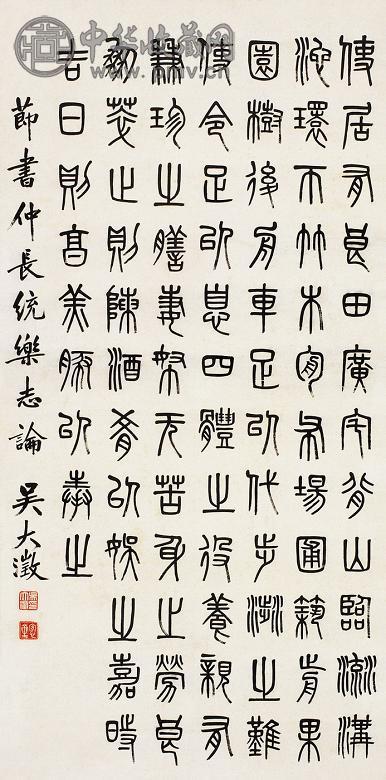 使居有良田廣宅背山臨流溝
池環帀竹木周布場圃築前果
園樹後舟車足以代步涉之難
使令足以息四體之役養親有
兼珍之膳妻孥无苦身之勞良
朋萃止則陳酒肴以娛之嘉時
吉日則亯羔豚以奉之
節書仲長統樂志論 吳大澂
中华收藏网